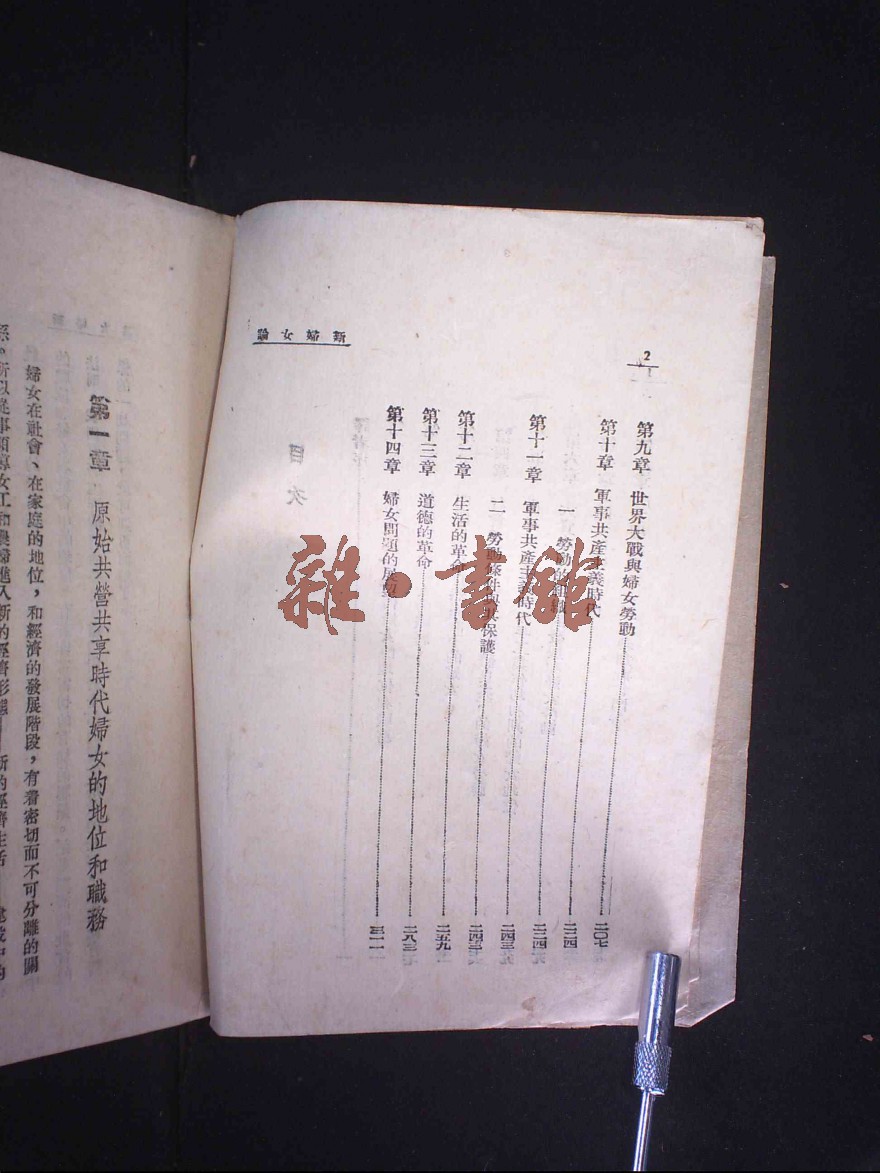 2
新婦女論
第九章 世界大戰與婦女勞動 二〇七
第十章 軍事共產主義時代 二二四
一 勞動 二二四
第十一章 軍事共產主義時代 二四三
二 勞動條件與其保護 二四三
第十二章 生活的革命 二五九
第十三章 道德的革命 二八三
第十四章 婦女問題的展望 三一一
目次
雜·書館
第一章 原始共營共享時代婦女的地位和職務
婦女在社會、在家庭的地位,和經濟的發展階段,有着密切而不可分離的關
係。所以從事領導女工和農婦進入新的經濟形態